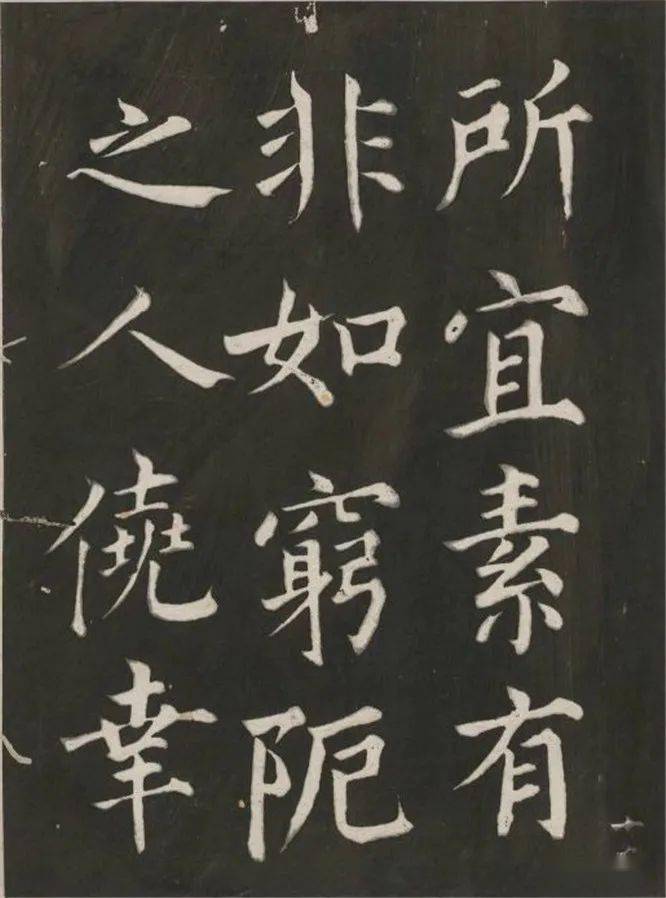 所宜素有
非如窮阨
之人僥幸